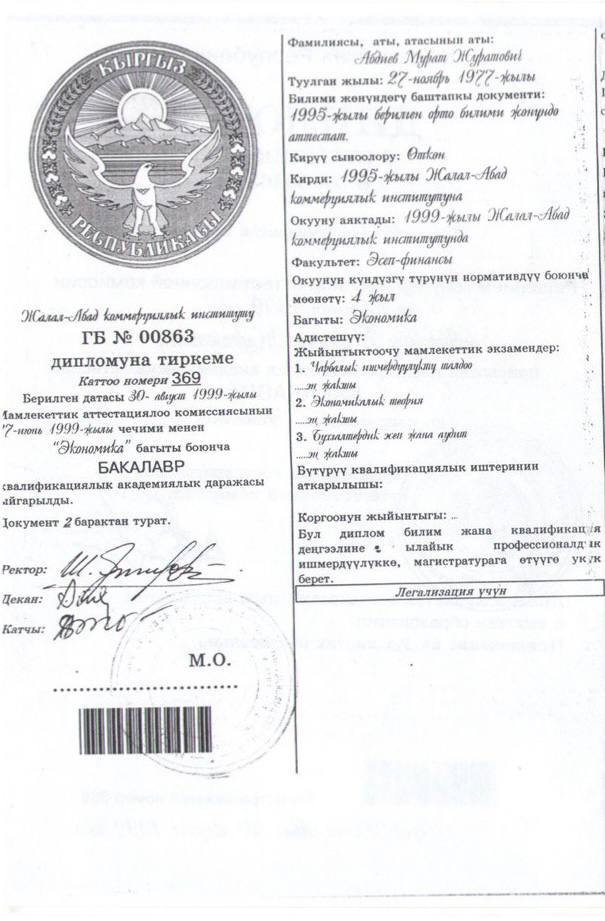 КЫРГЫЗ
РЕСПУБЛИКАСЫ
Жалал-Абад коммерциялык институту
ГБ № 00863
дипломуна тиркеме
Каттоо номери 369
Берилген датасы 30- август 1999-жылы
Мамлекеттик аттестациялоо комиссиясынын
7-июнь 1999-жылы чечими менен
"Экономика" багыты боюнча
БАКАЛАВР
квалификациялык академиялык даражасы
ыйгарылды.
Документ 2 барактан турат.
Ректор:
Декан:
Катчы:
М.О.
Фамилиясы, аты, атасынын аты:
Абдиев Мурат Жуматович
Туулган жылы: 27-ноябрь 1977-жылы
Билими жөнүндөгү баштапкы документи:
1995-жылы берилген орто билими жонундо
аттестат.
Кирүү сыноолору: Өткөн
Кирди: 1995-жылы Жалал-Абад
коммерциялык институтуна
Окууну аяктады: 1999-жылы Жалал-Абад
коммерциялык институтунда
Факультет: Эсеп-финансы
Окуунун күндүзгү түрүнүн нормативдүү боюнча
мөөнөтү: 4 жыл
Багыты: Экономика
Адистешүү:
Жыйынтыктоочу мамлекеттик экзамендер:
1. Чарбалык ишмердүүлүктү талдоо
.....эң жакшы
2. Экономикалык теория
.....эң жакшы
3. Бухгалтердик эсеп жана аудит
.....эң жакшы
Бүтүрүү квалификациялык иштеринин
аткарылышы:
Коргоонун жыйынтыгы: ...
Бул диплом билим жана квалификация
деңгээлине ылайык профессионалдык
ишмердүүлүккө, магистратурага өтүүгө укук
берет.
Легализация үчүн